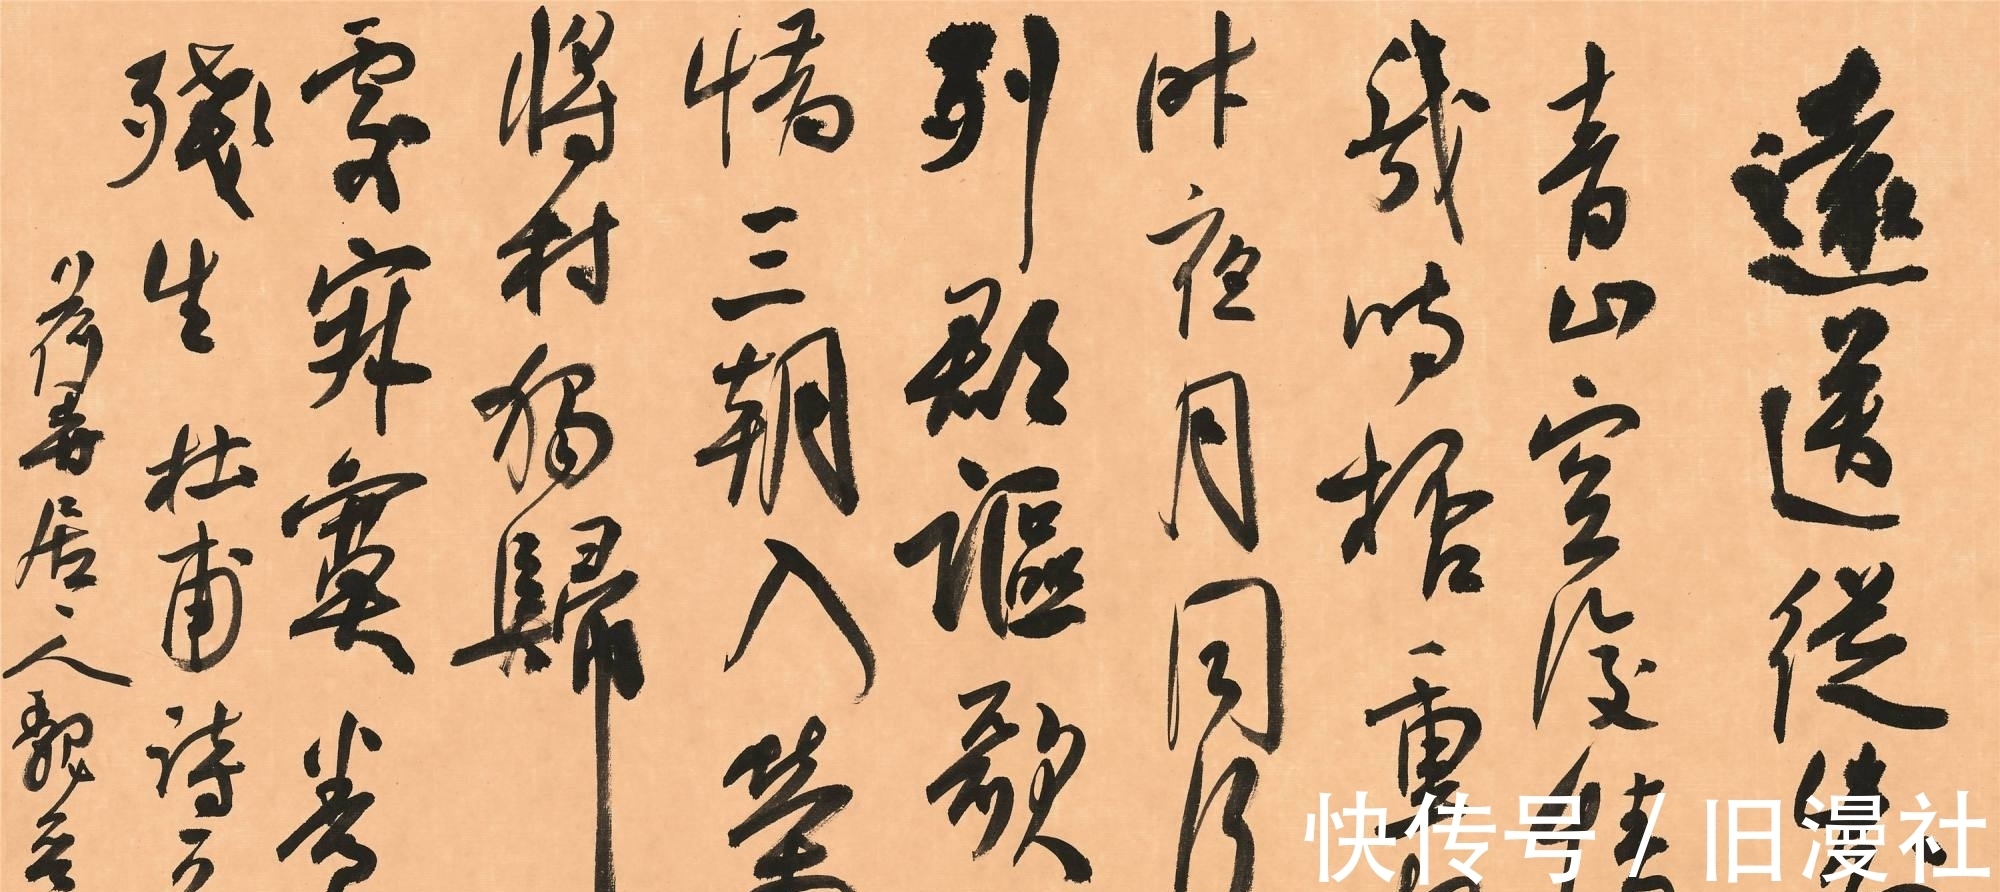 遠送從此
青山空復情
幾時杯重
昨夜月同行
列郡謳歌
惜三朝入榮
將村獨歸
處寂寞養
殘生 杜甫詩
居人魏
快传号 / 旧漫社